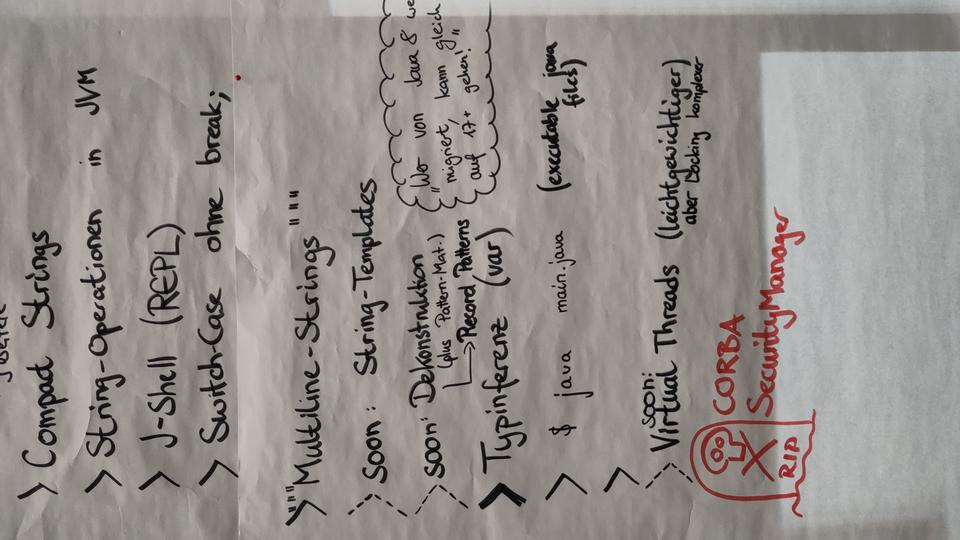 > Compact Strings
> String-Operationen in JVM
> J-Shell (REPL)
> Switch-Case ohne break;
> """Multiline-Strings"""
> Soon: String-Templates
> soon: Dekonstruktion
(plus Pattern-Mat.)
Record Patterns
"Wer von Java 8
migriert, kann gleich
auf 17+ gehen!"
> Typinferenz (var)
> $ java main.java (executable java
files)
>
> soon:
Virtual Threads (leichtgewichtiger)
aber Locking komplexer
CORBA
SecurityManager
RIP